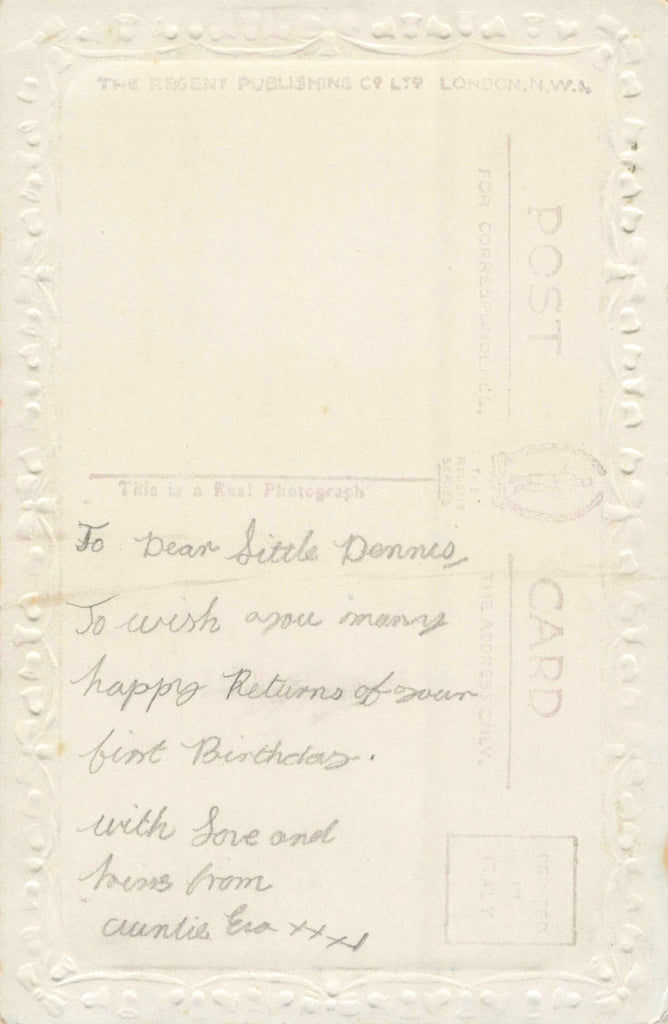 THE REGENT PUBLISHING CO LTD LONDON, N.W.1.
POST CARD
FOR CORRESPONDENCE.
THE ADDRESS ONLY.
THE
REGENT
SERIES
This is a Real Photograph
PRINTED
IN
ITALY
To Dear Little Dennis,
To wish you many
happy Returns of your
first Birthday.
with Love and
from
auntie xxx